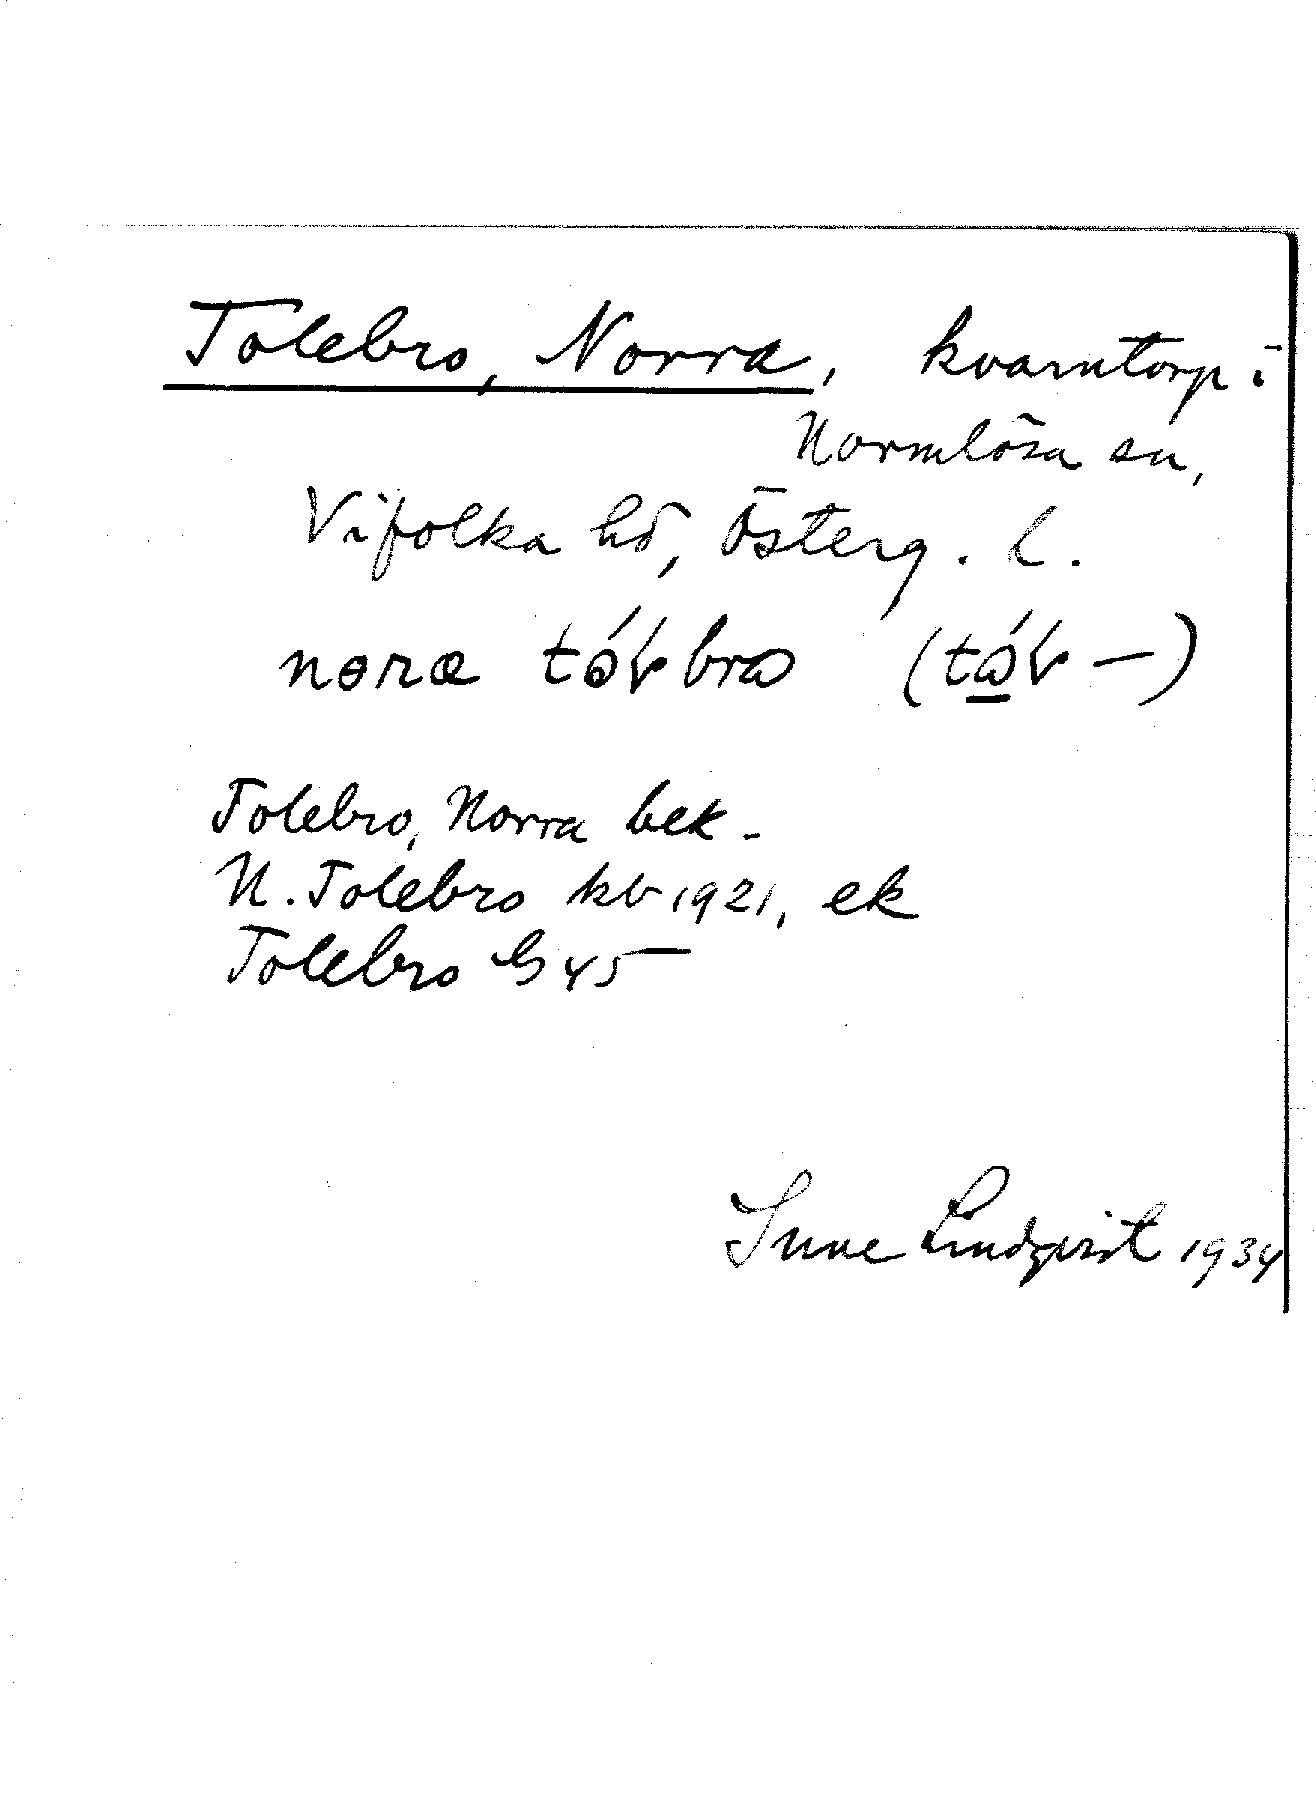 Tolebro, Norra, kvarntorp i
Normlösa sn,
Vifolka hd, Österg. l.
Tolebro, Norra bek.
N. Tolebro kb 1921, ek
Tolebro G 45
Sune Lindqvist 1934